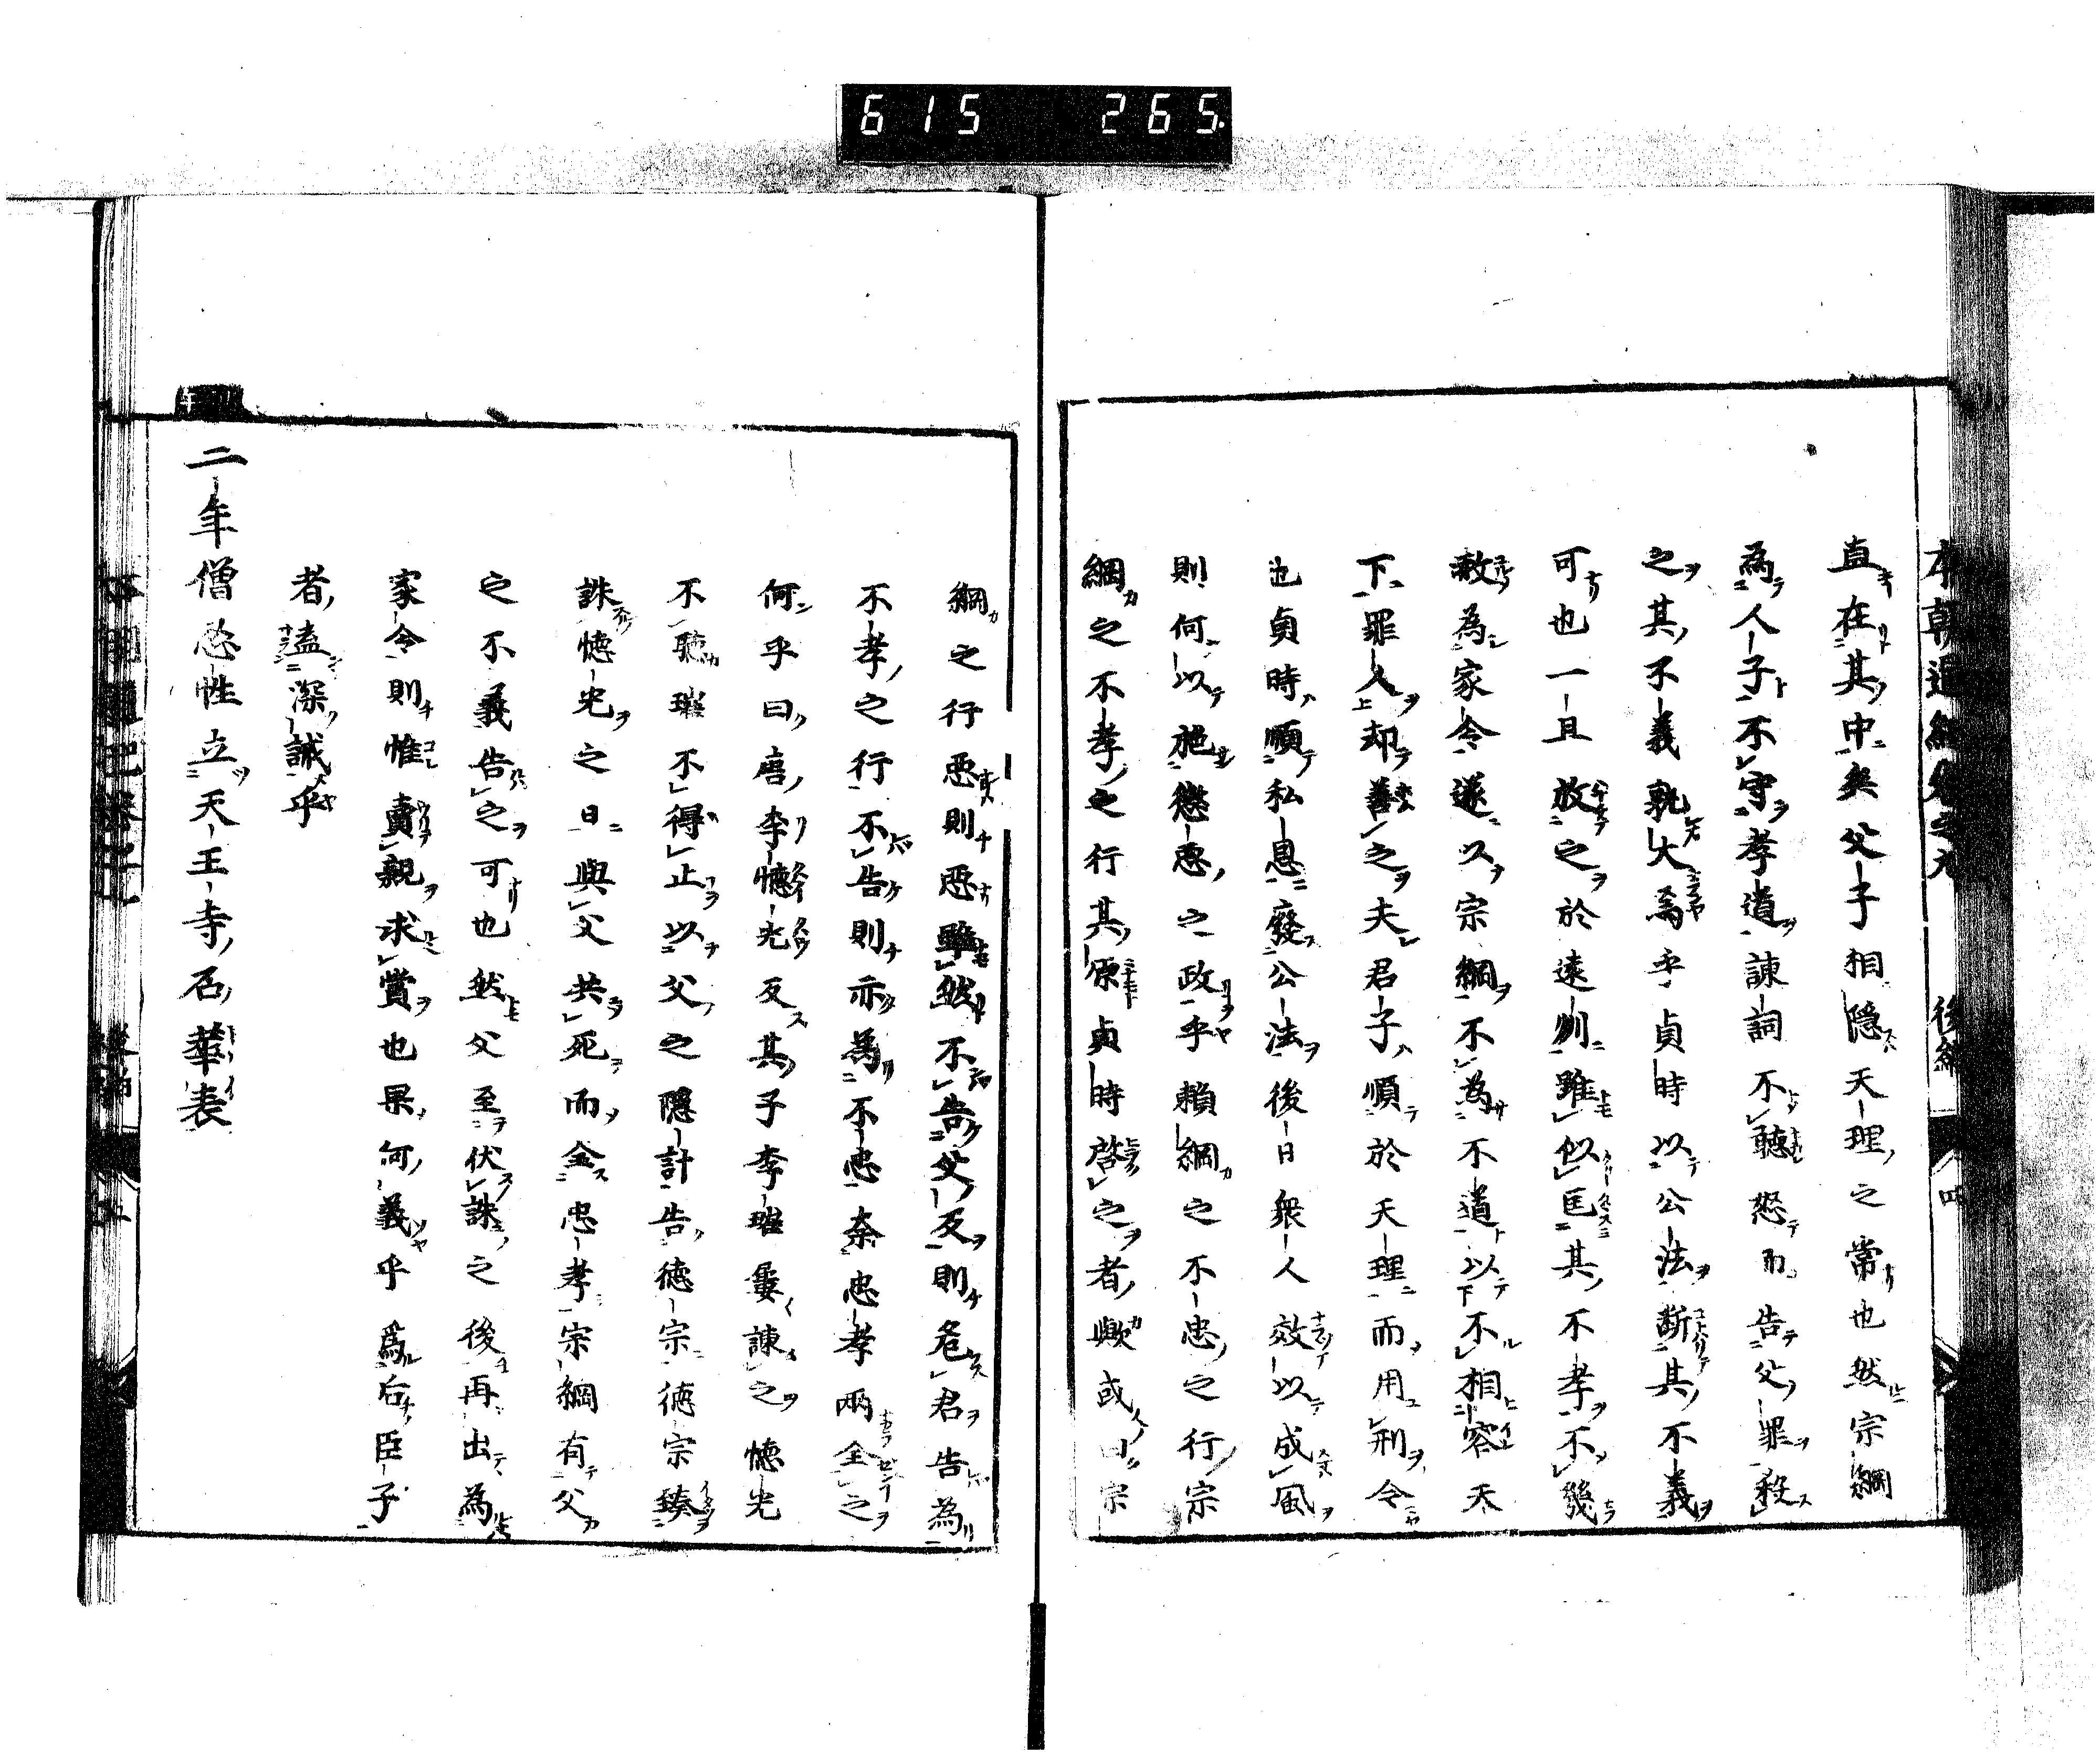 615 265.
直在其中矣父子相隠天理之常也然宗綱
為人子不守孝道諌詞不聴怒而告父罪殺
之其不義孰大焉乎貞時以公法断其不義
可也一旦放之於遠州雖似匡其不孝不幾
赦為家令遂以宗綱不為不道以不相容天
下罪人却善之夫君子順於天理而用刑令
也貞時順私恩廢公法後日衆人效以成風
則何以施懲悪之政乎頼綱之不忠之行宗
綱之不孝之行其原貞時啓之者歟或曰宗
綱之行悪則悪雖然不告父反則危君告為
不孝之行不告則亦為不忠奈忠孝兩全之
何乎曰唐李懐光反其子李璀屢諌之懐光
不聴璀不得止以父之隠計告徳宗徳宗臻
誅懐光之日與父共死而全忠孝宗綱有父
之不義告之可也然父至伏誅之後再出為
家令則惟賣親求賞也果何義乎為后臣子
者盍深誡乎
二年僧忍性立天王寺石華表